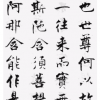 也世尊何以
一往來而實
斯陀含須菩
阿那含能作是